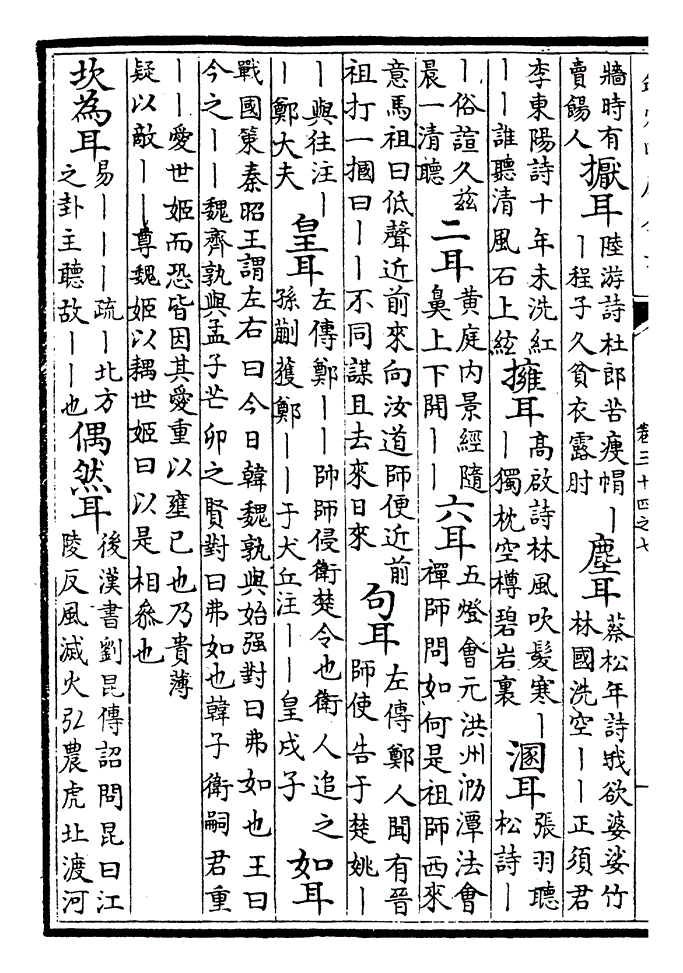 牆時有賣餳人 擫耳 陸游詩杜郎苦瘦帽丨丨程子久貧衣露肘 塵耳 蔡松年詩我欲婆娑竹林國洗空丨丨正須君
李東陽詩十年未洗紅丨丨誰聽清風石上絃 擁耳 高啟詩林風吹髮寒丨丨獨枕空樽碧岩裏 溷耳 張羽聽松詩丨
丨俗諠久茲晨一清聽 二耳 黃庭內景經隨鼻上下開丨丨 六耳 五燈會元洪州泐潭法會禪師問如何是祖師西來
意馬祖曰低聲近前來向汝道師便近前祖打一摑曰丨丨不同謀且去來日來 句耳 左傳鄭人聞有晉師使告于楚姚丨
丨與往注丨丨鄭大夫 皇耳 左傳鄭丨丨帥師侵衛楚令也衛人追之孫蒯獲鄭丨丨于犬丘注丨丨皇戌子 如耳
戰國策秦昭王謂左右曰今日韓魏孰與始强對曰弗如也王曰今之丨丨魏齊孰與孟子芒卯之賢對曰弗如也韓子衛嗣君重
丨丨愛世姬而恐皆因其愛重以壅己也乃貴薄疑以敵丨丨尊魏姬以耦世姬曰以是相參也
坎為耳 易丨丨丨疏丨北方之卦主聽故丨丨也 偶然耳 後漢書劉昆傳詔問昆曰江陵反風滅火弘農虎北渡河
卷三十四之七